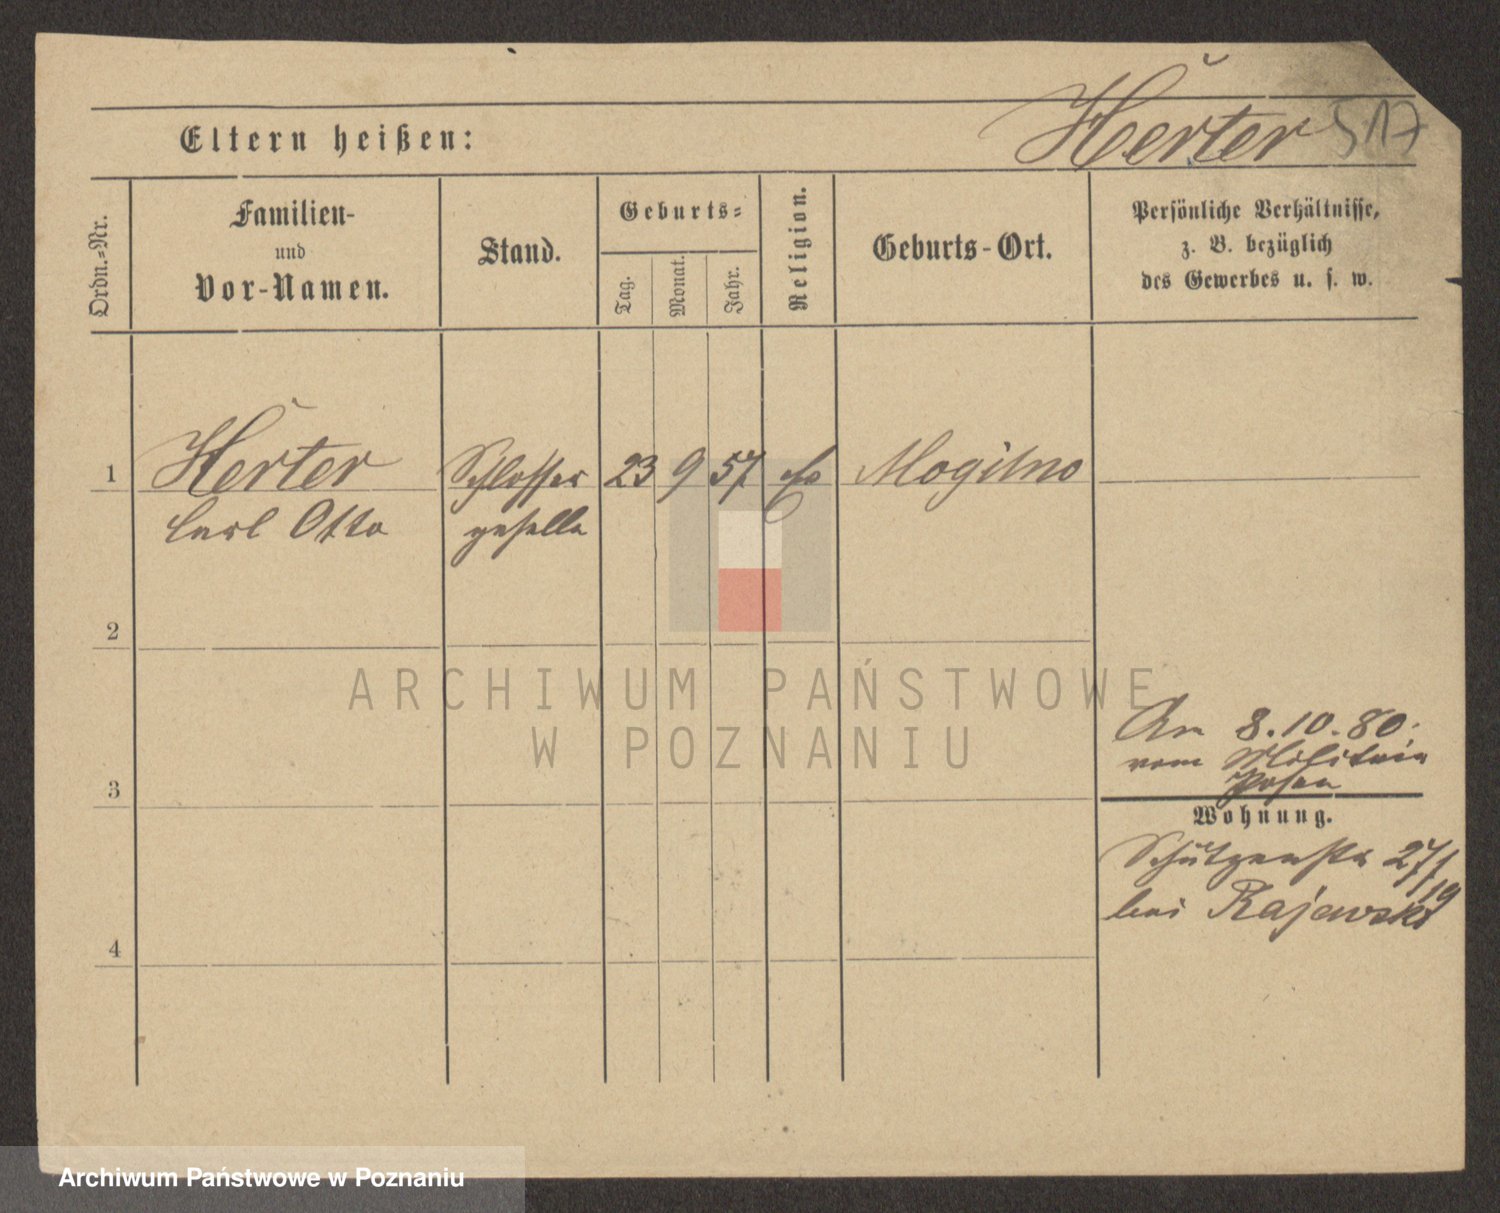 Herter 517
Eltern heißen:
Ordn.-Nr.
Familien-
und
Vor-Namen.
Stand.
Geburts-
Tag.
Monat.
Jahr.
Religion.
Geburts-Ort.
Persönliche Verhältnisse,
z. B. bezüglich
des Gewerbes u. s. w.
1 Herter Schlosser 23 9 57 Mogilno
Carl Otto geselle
2
3
4
An 8.10.80.
vom Militair
Posen
Wohnung.
Schützenstr 27/19
bei Rajewski
ARCHIWUM PAŃSTWOWE
W POZNANIU
Archiwum Państwowe w Poznaniu